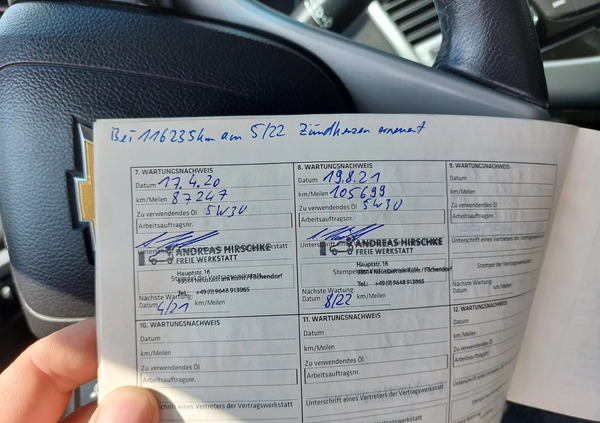 Bei 116235km am 5/22 Zündkerzen erneuert
7. WARTUNGSNACHWEIS
Datum 17.4.20
km/Meilen 87247
Zu verwendendes Öl 5W30
Arbeitsauftragsnr.
ANDREAS HIRSCHKE
FREIE WERKSTATT
Hauptstr. 16
Tel.: +49 (0) 9648 913065
Nächste Wartung:
Datum 4/21 km/Meilen
8. WARTUNGSNACHWEIS
Datum 19.8.21
km/Meilen 105699
Zu verwendendes Öl 5W30
Arbeitsauftragsnr.
ANDREAS HIRSCHKE
FREIE WERKSTATT
Hauptstr. 16
Tel.: +49 (0) 9648 913065
Nächste Wartung:
Datum 8/22 km/Meilen
9. WARTUNGSNACHWEIS
Datum
km/Meilen
Zu verwendendes Öl
Arbeitsauftragsnr.
Unterschrift eines Vertreters der Vertragswerkstatt
Stempel der Vertragswerkstatt
Nächste Wartung:
Datum km/Meilen
10. WARTUNGSNACHWEIS
Datum
km/Meilen
Zu verwendendes Öl
Arbeitsauftragsnr.
Unterschrift eines Vertreters der Vertragswerkstatt
11. WARTUNGSNACHWEIS
Datum
km/Meilen
Zu verwendendes Öl
Arbeitsauftragsnr.
Unterschrift eines Vertreters der Vertragswerkstatt
12. WARTUNGSNACHWEIS
Datum
km/Meilen
Zu verwendendes Öl
Arbeitsauftragsnr.